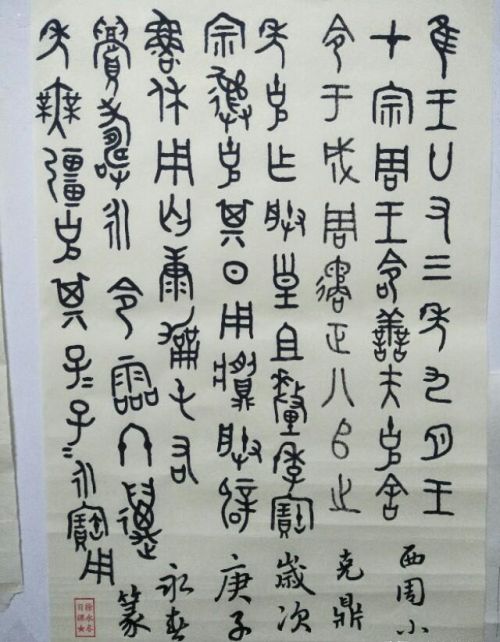 隹王廿又三年九月王
才宗周王令善夫克舍 西周小
令于成周遹正八𠂤之 克鼎
年克乍朕皇且釐季寶 歲次
宗彝克其日用䵼朕辟 庚子
魯休用匄康勵屯右 永春
眉壽永令霝冬萬 篆
年無疆克其子=孫=永寶用